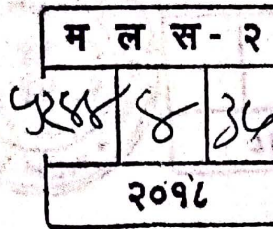 म ल स - २
५२४४ ४ ३५
२०१८